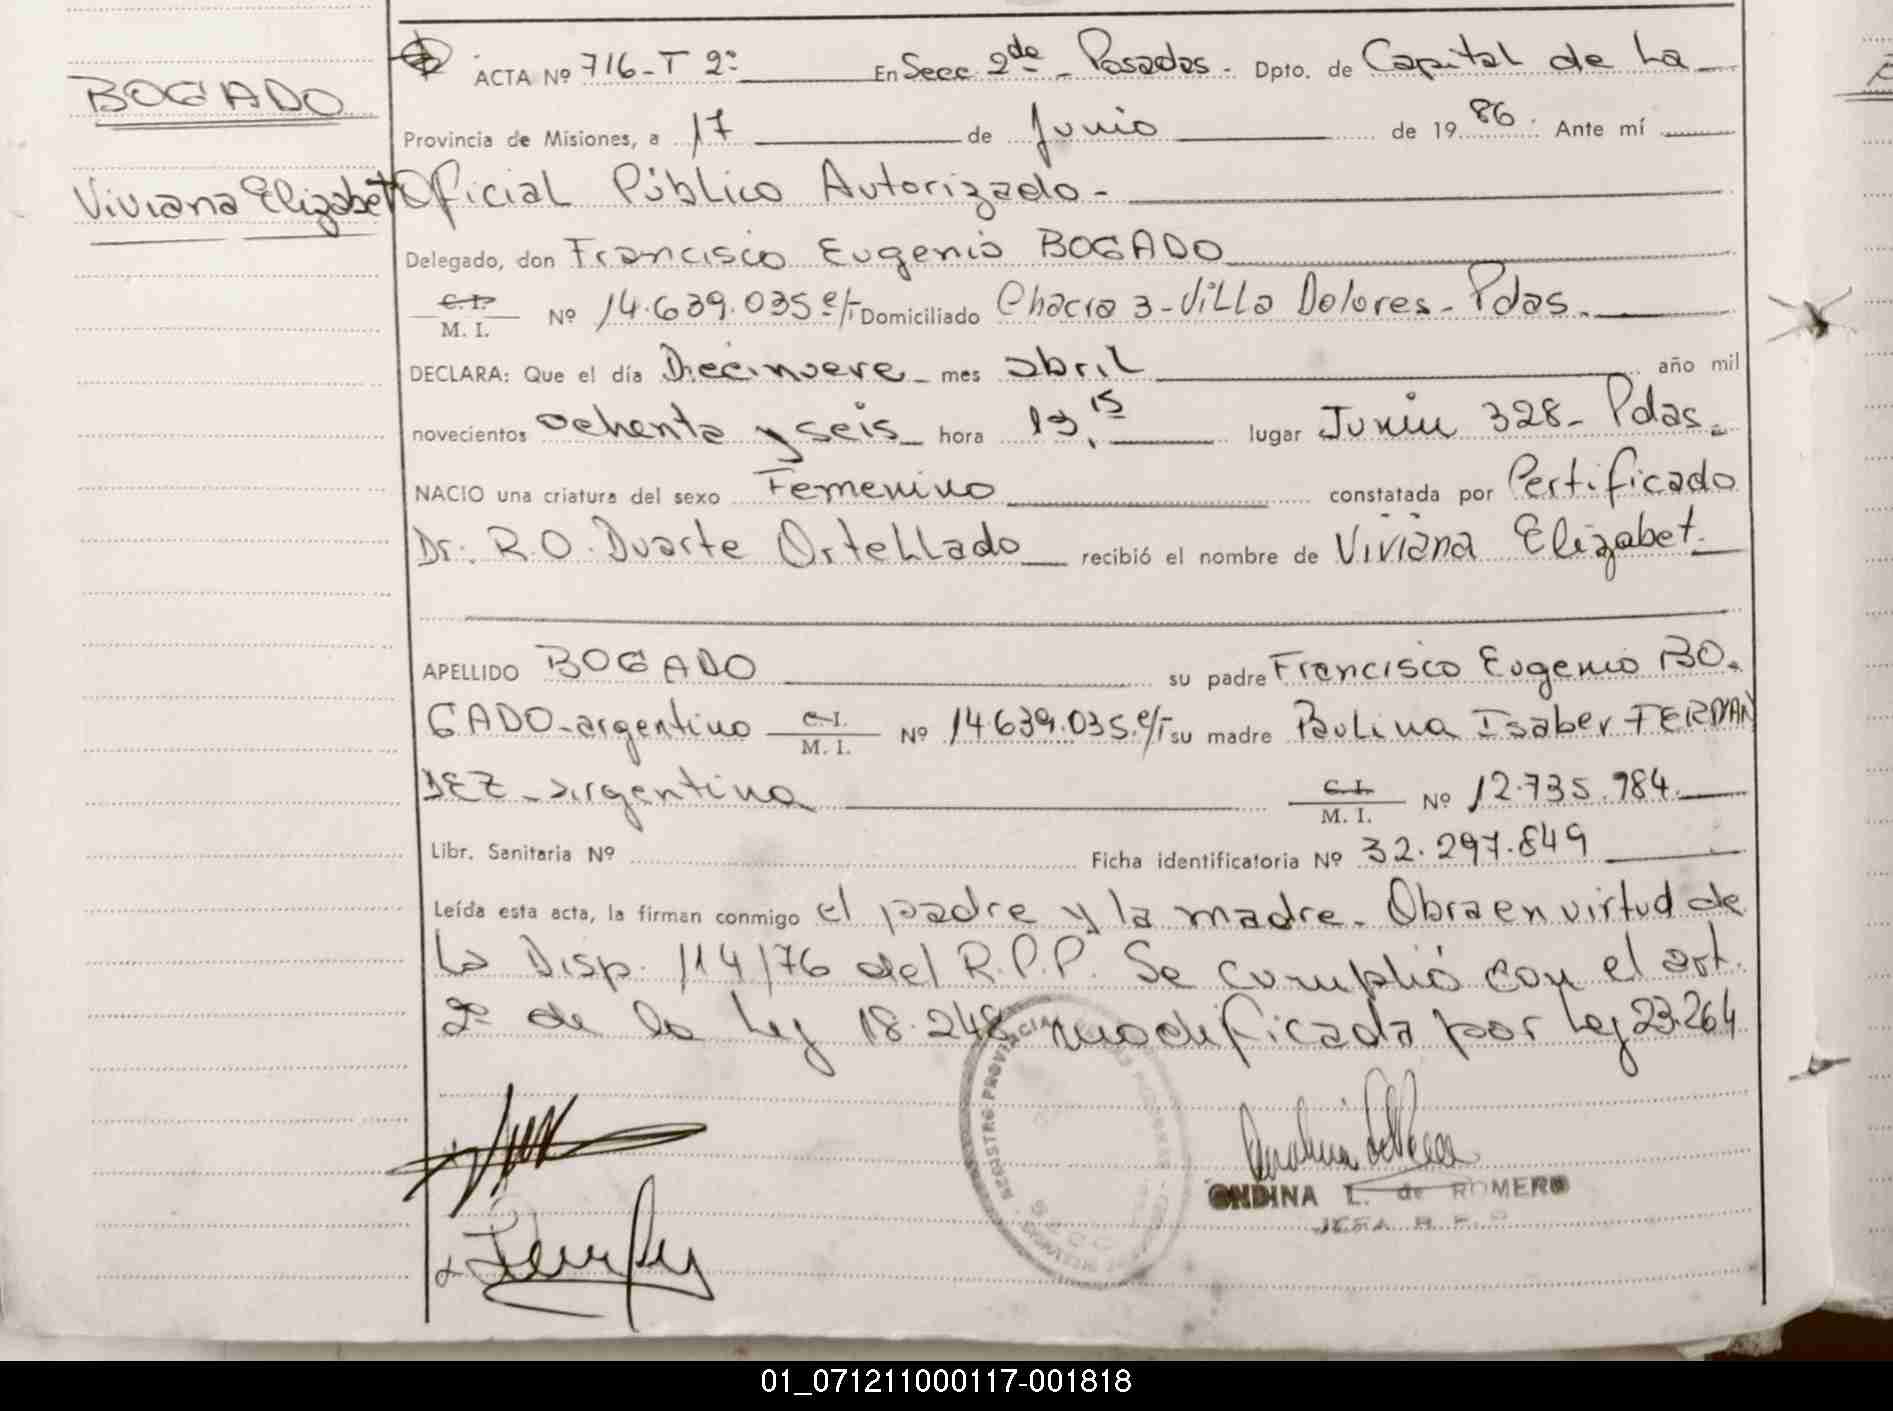 BOGADO
Viviana Elizabet
ACTA Nº 716-T 2º En Secc 2da - Posadas - Dpto. de Capital de La
Provincia de Misiones, a 17 de Junio de 1986. Ante mí
Oficial Público Autorizado -
Delegado, don Francisco Eugenio BOGADO
C.I. M. I. Nº 14.639.035 e/T Domiciliado Chacra 3 - Villa Dolores - Pdas.
DECLARA: Que el día Diecinueve mes abril año mil
novecientos ochenta y seis hora 13,15 lugar Junin 328 - Pdas.
NACIO una criatura del sexo Femenino constatada por Certificado
Dr. R.O. Duarte Ortellado recibió el nombre de Viviana Elizabet.
APELLIDO BOGADO su padre Francisco Eugenio BO.
GADO - argentino C.I. M. I. Nº 14.639.035. e/T su madre Paulina Isabel FERNAN
DEZ - argentina C.I. M. I. Nº 12.735.984.
Libr. Sanitaria Nº Ficha identificatoria Nº 32.297.849
Leída esta acta, la firman conmigo el padre y la madre. Obra en virtud de
la Disp. 114/76 del R.P.P. Se cumplió con el art.
2º de la Ley 18.248 modificada por Ley 23.264
REGISTRO PROVINCIAL
ONDINA L. de ROMERO
JEFA
01_071211000117-001818